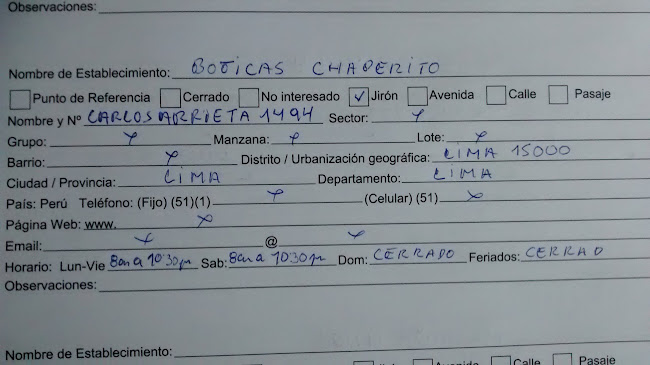 Observaciones:
Nombre de Establecimiento: BOTICAS CHAPERITO
Punto de Referencia Cerrado No interesado ✓ Jirón Avenida Calle Pasaje
Nombre y Nº CARLOS ARRIETA 1494 Sector: x
Grupo: x Manzana: x Lote: x
Barrio: x Distrito / Urbanización geográfica: LIMA 15000
Ciudad / Provincia: LIMA Departamento: LIMA
País: Perú Teléfono: (Fijo) (51)(1) x (Celular) (51) x
Página Web: www. x
Email: x @ x
Horario: Lun-Vie 8am a 10:30pm Sab: 8am a 10:30pm Dom: CERRADO Feriados: CERRAD
Observaciones:
Nombre de Establecimiento:
Avenida Calle Pasaje